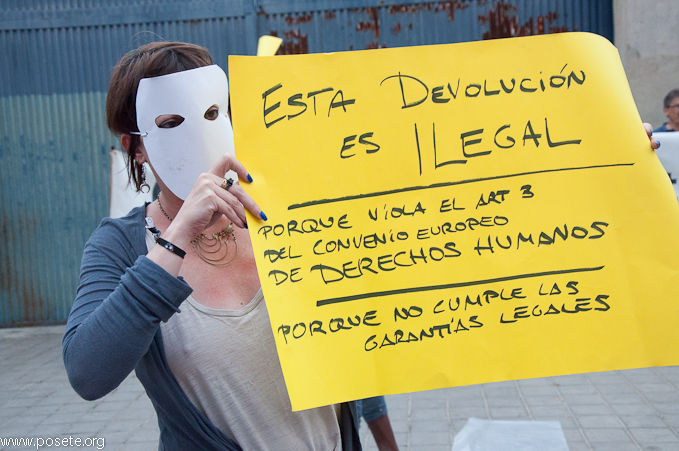 ESTA DEVOLUCIÓN
ES ILEGAL
PORQUE VIOLA EL ART 3
DEL CONVENIO EUROPEO
DE DERECHOS HUMANOS
PORQUE NO CUMPLE LAS
GARANTÍAS LEGALES
www.posete.org